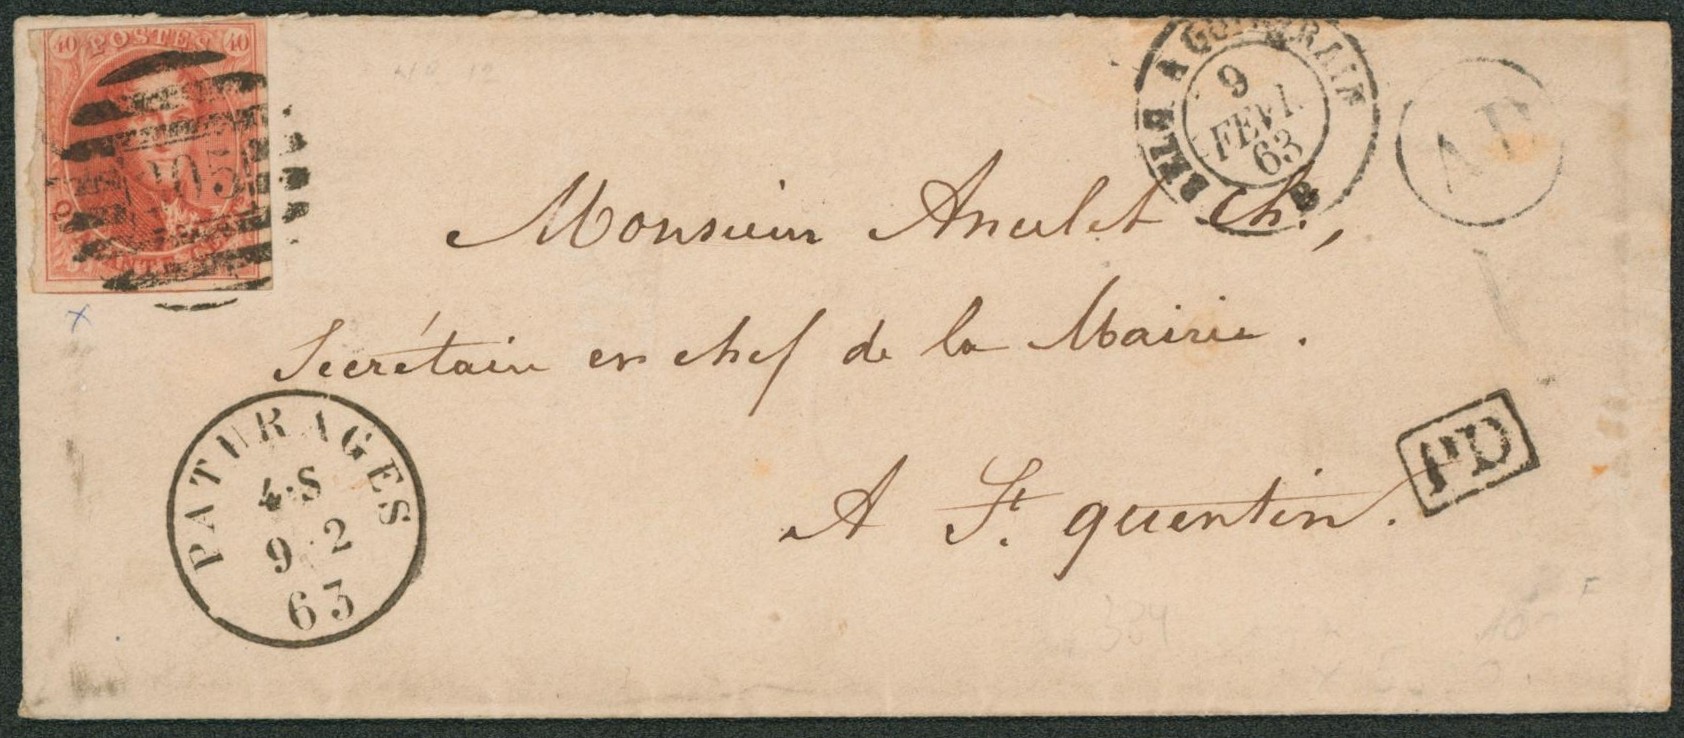 40 POSTES 40
NO 12
BELG. A QUIEVRAIN
9
FEVR.
63
AP
Monsieur Anculet Ch.,
Secrétaire en chef de la Mairie.
A St. quentin.
PD
PATURAGES
4·S
9 2
63
334